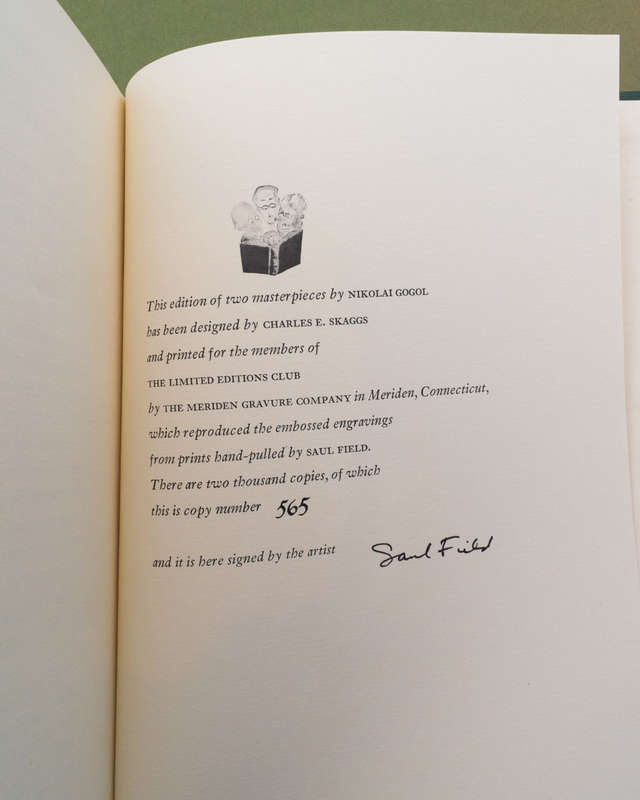 This edition of two masterpieces by NIKOLAI GOGOL
has been designed by CHARLES E. SKAGGS
and printed for the members of
THE LIMITED EDITIONS CLUB
by THE MERIDEN GRAVURE COMPANY in Meriden, Connecticut,
which reproduced the embossed engravings
from prints hand-pulled by SAUL FIELD.
There are two thousand copies, of which
this is copy number 565
and it is here signed by the artist Saul Field